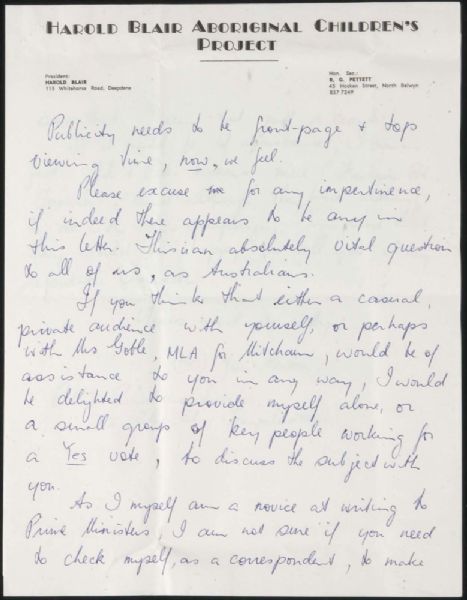 HAROLD BLAIR ABORIGINAL CHILDREN'S
PROJECT
President:
HAROLD BLAIR
113 Whitehorse Road, Deepdene
Hon. Sec.:
R. G. PETTETT
45 Hosken Street, North Balwyn
857 7249
Publicity needs to be front-page & tops
viewing time, now, we feel.
Please excuse me for any impertinence,
if indeed there appears to be any in
this letter. This is an absolutely vital question
to all of us, as Australians.
If you think that either a casual,
private audience with yourself, or perhaps
with Mrs Goble, MLA for Mitcham, would be of
assistance to you in any way, I would
be delighted to provide myself alone, or
a small group of key people working for
a Yes vote, to discuss the subject with
you.
As I myself am a novice at writing to
Prime Ministers, I am not sure if you need
to check myself, as a correspondent, to make